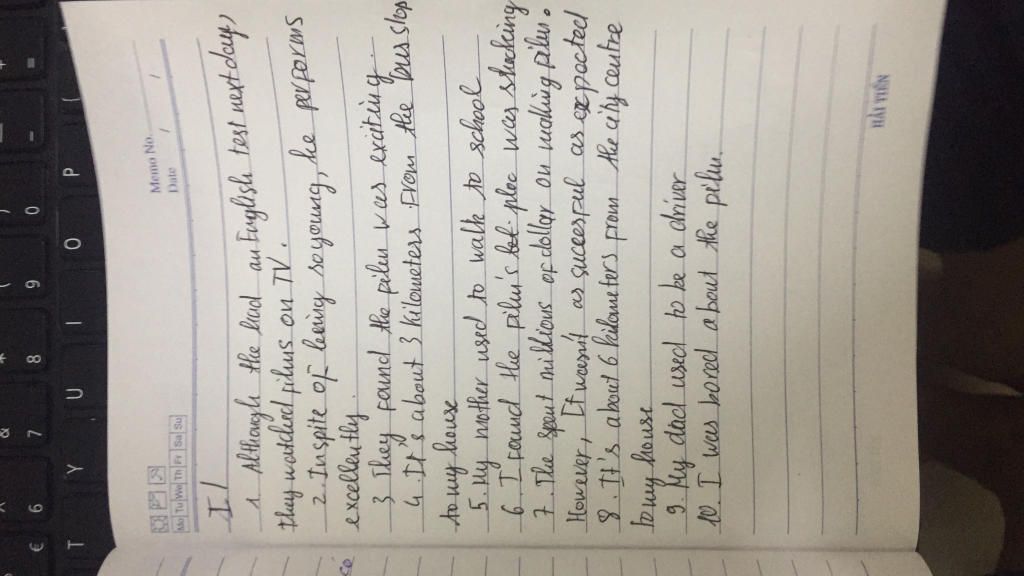 Memo No. / 
Date / /
Mo Tu We Th Fr Sa Su
I/
1. Although the had an English test next day,
they watched films on TV.
2. Inspite of being so young, he performs
excellently.
3 They found the film was exciting
4. It's about 3 kilometers from the bus stop
to my house
5. My mother used to walk to school
6. I found the film's plec was shocking
7. The spent millions of dollar on making film.
However, It wasn't as succesful as expected
8. It's about 6 kilometers from the city centre
to my house
9. My dad used to be a driver
10. I was bored about the film.
HẢI TIẾN
€ 6 & 7 * 8 ( 9 ) 0 _ - + =
T Y U I O P {